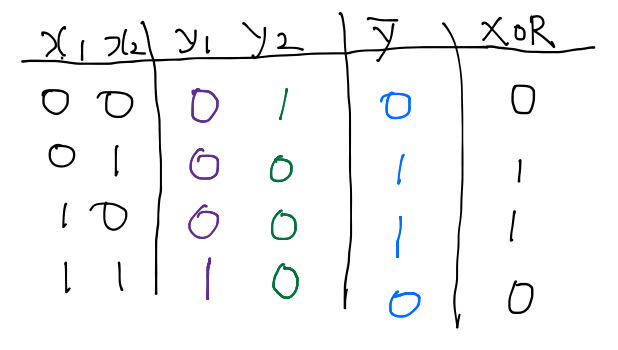 x₁ x₂ y₁ y₂ ȳ XOR
0 0 0 1 0 0
0 1 0 0 1 1
1 0 0 0 1 1
1 1 1 0 0 0